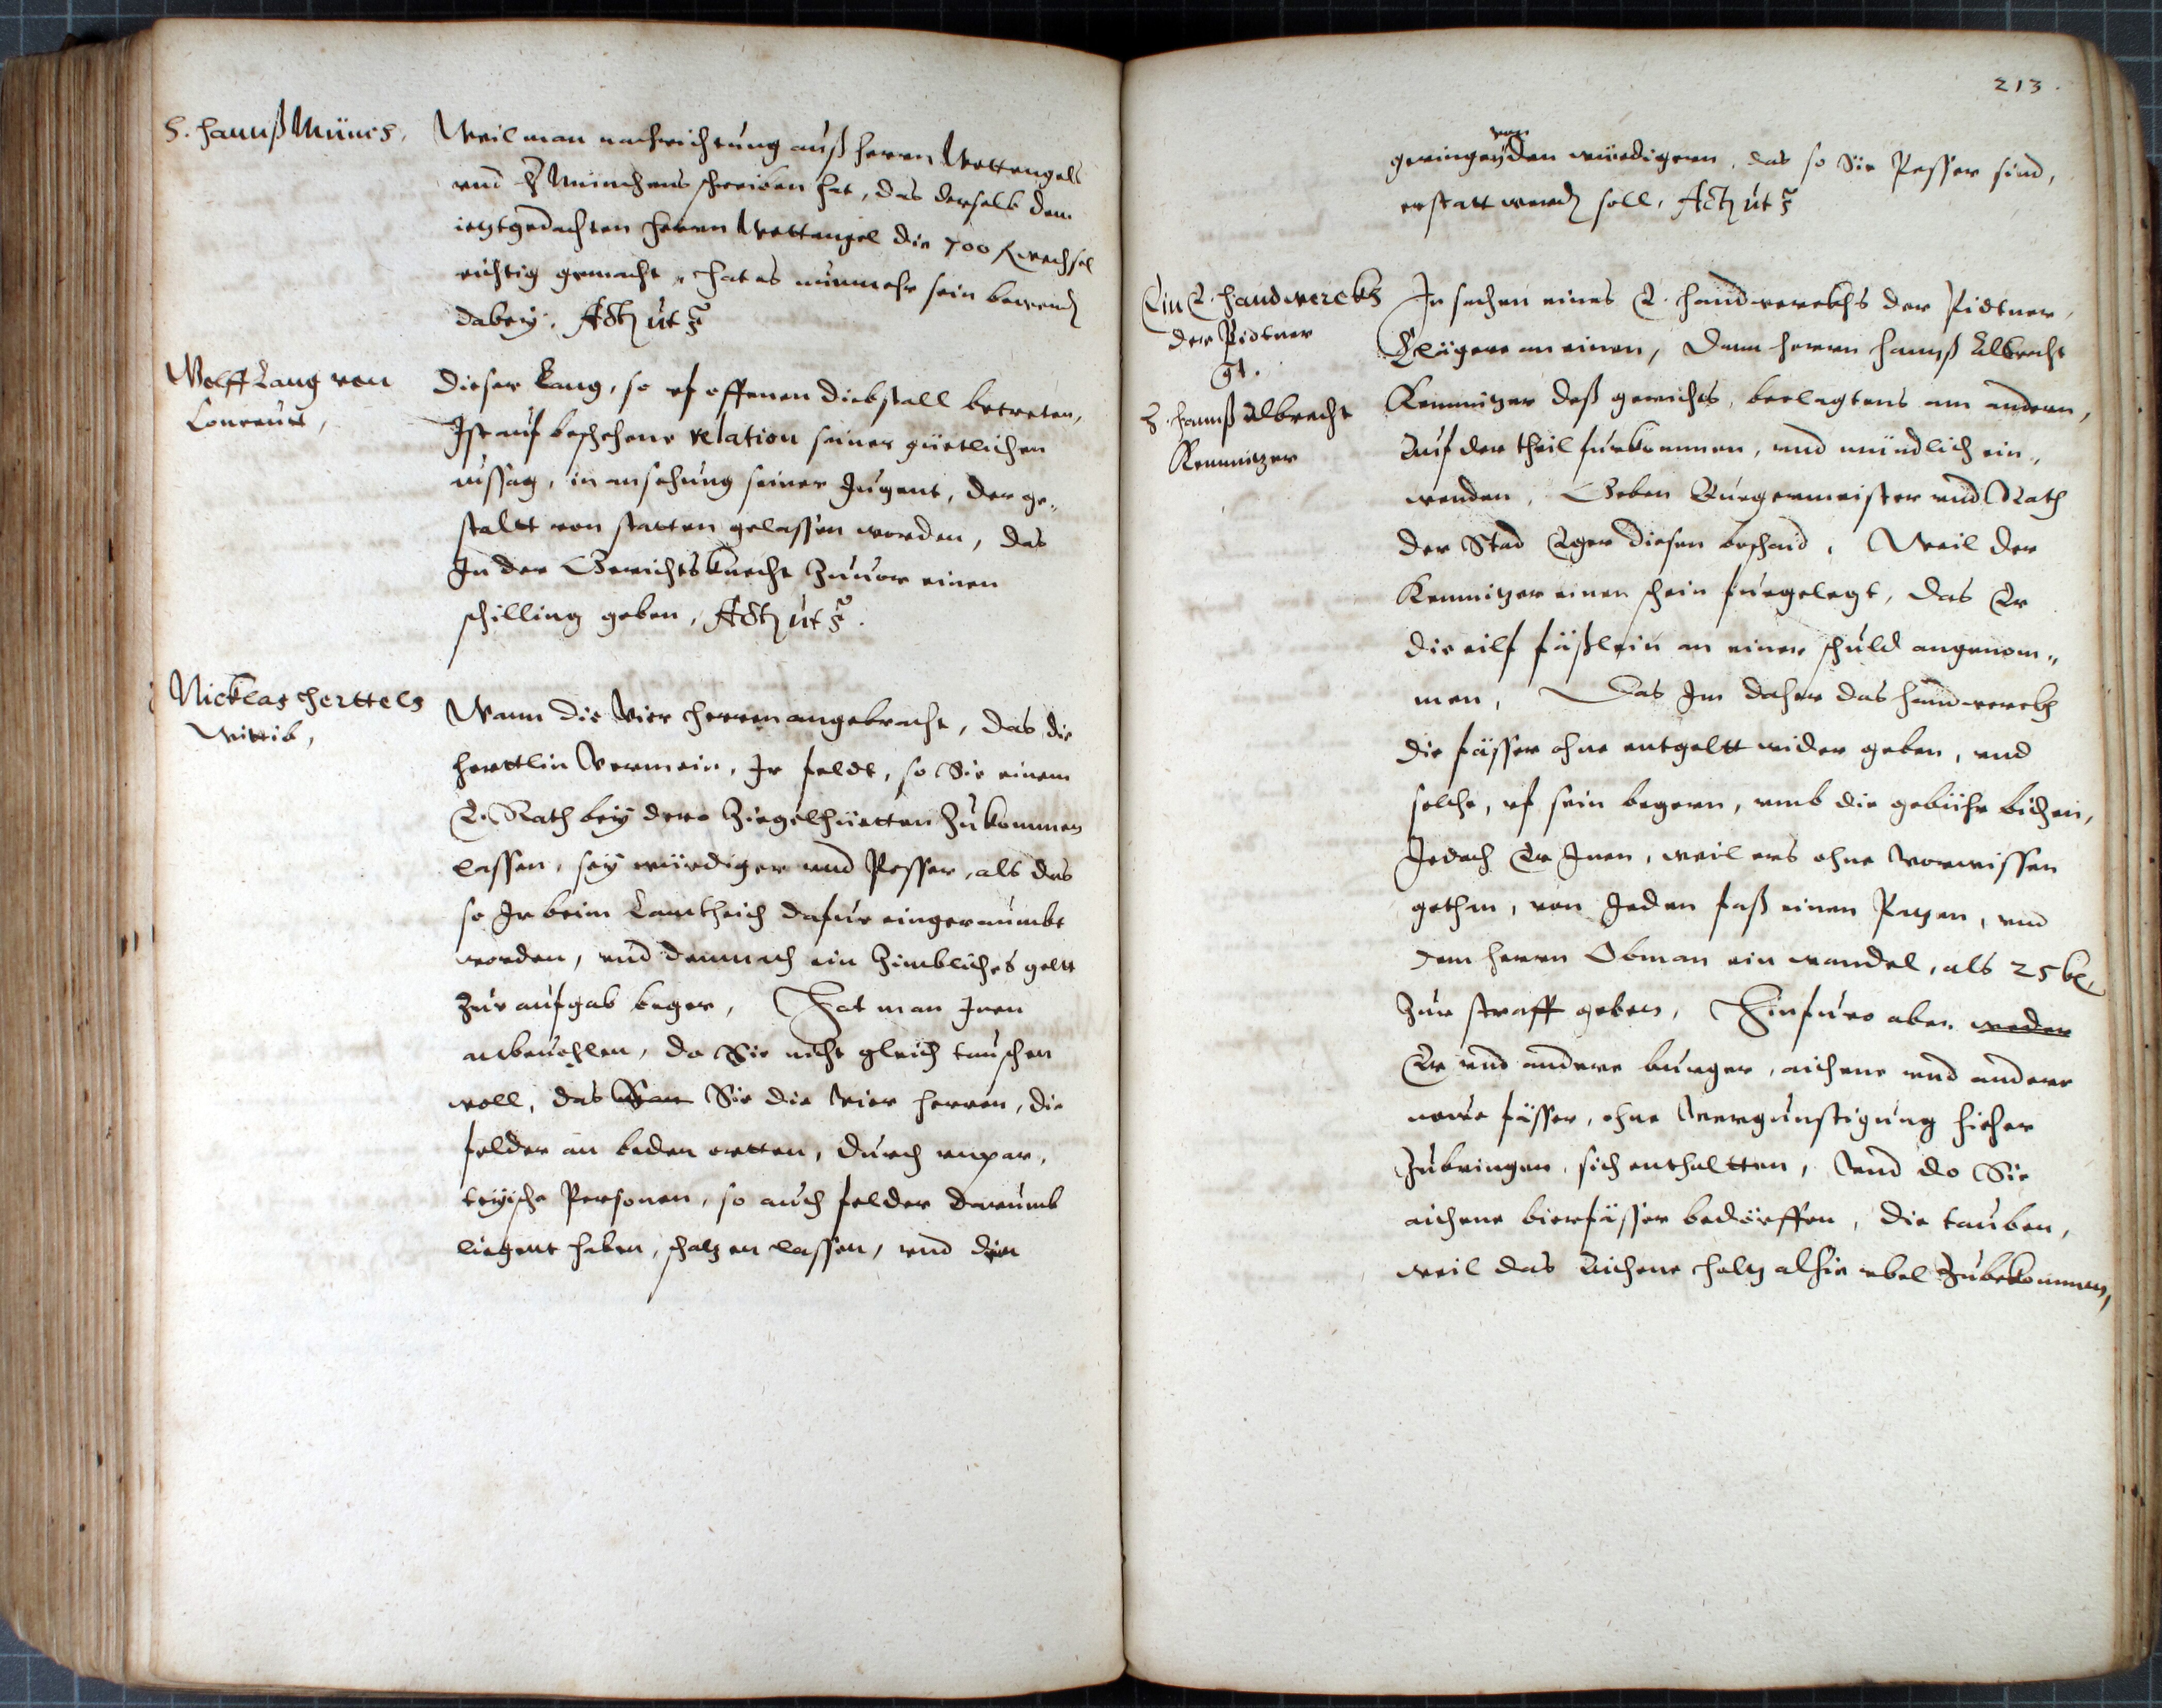 H. Hannß Münch.
Weil man nachrichtung auß herrn Wettengels
vnd H. Münchens schreiben hat, das derselb dem
ietztgedachten herrn Wettengel die 700 f wechsel
richtig gemacht, hat es nünmehr sein bewend
dabey. Act ut s
Wolff Lang von
dieser Lang, so vf offenen diebstall betreten,
Ist auf beschehene relation seiner güetlichen
aussag, in ansehung seiner Jugent, der ge„
staltt von statten gelassen worden, das
Jn der Gerichtsknecht zuuor einen
schilling geben, Act ut s.
Nicklas Herttels
Wittib,
Wann die Vier herren angebracht, das die
herttlin Vermein, Jr feldt, so Sie einem
E. Rath bey dero Ziegelhüetten zukommen
lassen, sey würdiger vnd Pesser, als das
so Jr beim dafur eingeraumbt
worden, vnd demnach ein zimbliches geltt
zur aufgab beger, Hat man Jnen
anbeuohlen, da Sie nicht gleich tauschen
woll, das Sie die Vier herren, die
felder an beden ortten, durch vnpar„
teyische Personen, so auch felder darumb
liegent haben, schatzen lassen, vnd den
213.
von
geringern den würdigern, das so Sie Pesser sind,
erstatt werd soll, Act ut s
Ein E. Handwerckh
der Pidtner
gt.
H. Hannß Albrecht
Kemnitzer
In sachen eines E. Handwerckhs der Pidtner,
Clägere an einen, dann herrn Hannß Albrecht
Kemnitzer deß gerichts, beclagtens am andern,
Auf der theil furkommen, vnd mündlich ein„
wenden, Geben Burgermeister vnd Rath
der Stad Eger diesen beschaid, Weil der
Kemnitzer einen schein fürgelegt, das Er
die eilf fäßlein an einer schuld angenom„
men, Das Jm daher das handwerckh
die fässer ohne entgeltt wider geben, vnd
solche, vf sein begern, vmb die gebühr bichen,
Jedoch Er Jnen, weil ers ohne Vorwissen
gethan, von Jeden faß einen Patzen, vnd
dem herrn Obman ein wandel, als 25 k,
zur straff geben, Hinfüro aber weder
Er vnd andere burger, aichene vnd andere
newe fässer, ohne Vergünstigung hieher
zubringen, sich enthaltten, Vnd do Sie
aichene bierfässer bedörffen, die tauben,
weil das Aichene holtz alhie vbel zubekommen,